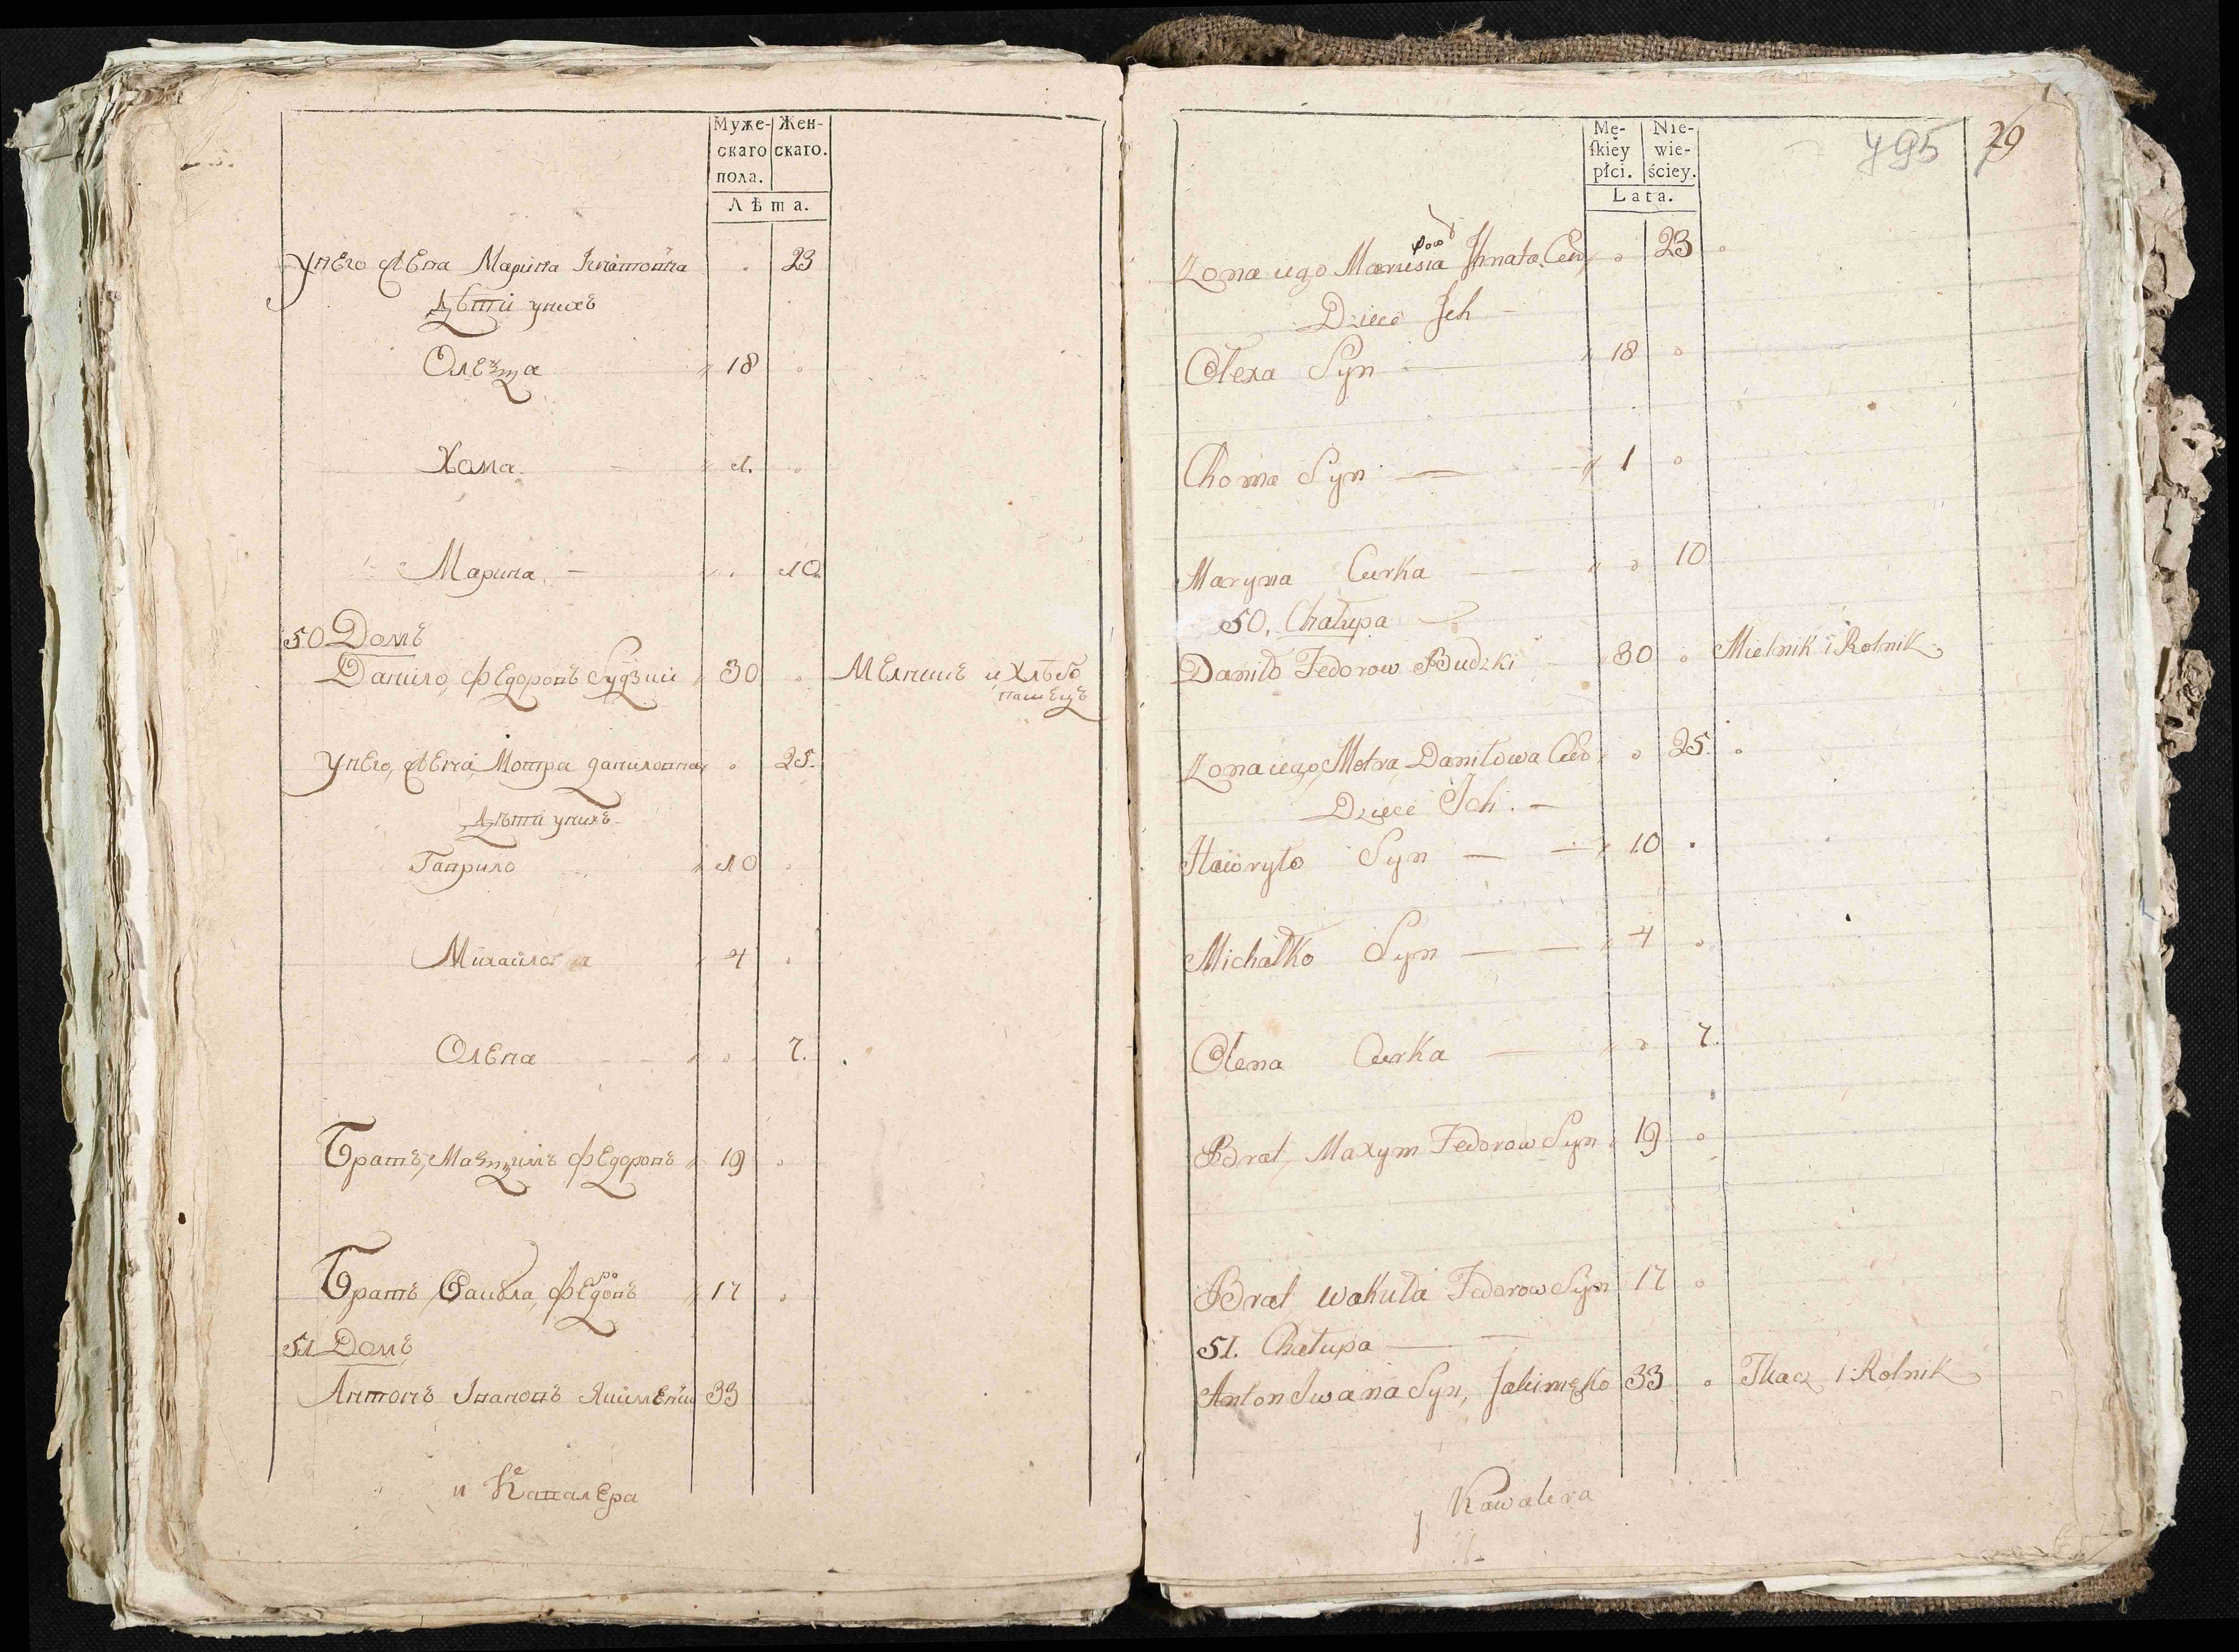 Муже- Жен-
скаго скаго.
пола.
Лѣта.
Унего жена Марина Игнатовна 23
дѣти унихъ
Олекса 18
Хома 1.
Марина 10.
50 Домъ
Данило Федоровъ Будзки 30 Мелникъ и Хлѣбо
пашецъ
Унего, жена, Мотра даниловна 25.
дѣти унихъ
Гаврило 10
Михайло 4
Олена 7.
Братъ, Максимъ Федоровъ 19
Братъ, Вакула, Федоровъ 17
51 Домъ
Антонъ Івановъ Якименко 33
и Кавалера
Mę- Nie-
ſkiey wie-
płci. ściey.
Lata.
495 29
Zona iego Marusia Jhnatowa Cur 23
Dzieci Jch
Olexa Syn 18
Choma Syn 1
Maryna Curka 10
50. Chałupa
Daniło Fedorow Budzki 30 Mielnik i Rolnik
Zona iego, Motra Daniłowa Cur 25.
Dzieci Jch.
Hawryło Syn 10
Michałko Syn 4
Olena Curka 7.
Brat, Maxym Fedorow Syn 19
Brat wakuła Fedorow Syn 17
51. Chałupa
Anton Jwana Syn, Jakimęko 33 Tkacz i Rolnik
y Kawalera